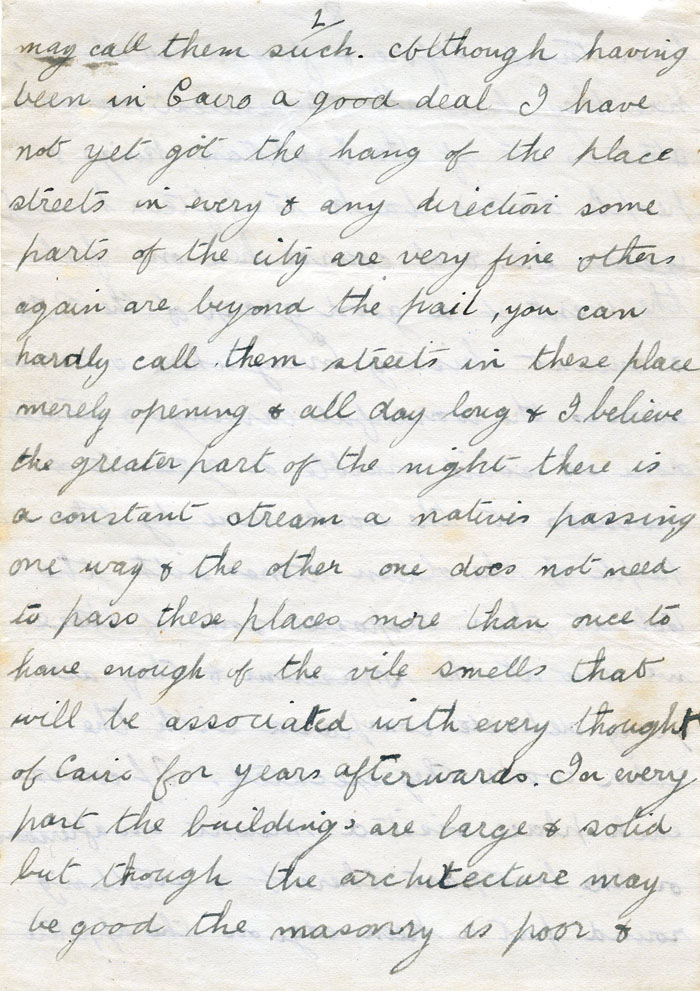 2
may call them such. Although having
been in Cairo a good deal I have
not yet got the hang of the place
streets in every & any direction some
parts of the city are very fine others
again are beyond the pail, you can
hardly call them streets in these place
merely opening & all day long & I believe
the greater part of the night there is
a constant stream a natives passing
one way & the other one does not need
to pass these places more than once to
have enough of the vile smells that
will be associated with every thought
of Cairo for years afterwards. In every
part the buildings are large & solid
but though the architecture may
be good the masonry is poor &